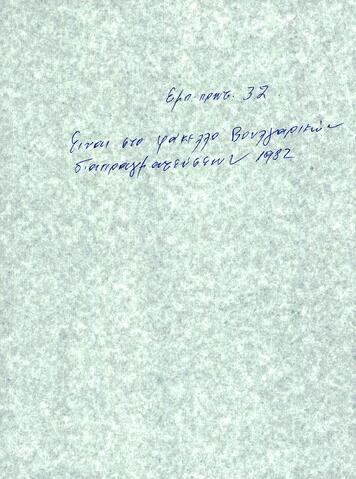 Εμπ. πρωτ. 32
Είναι στο φάκελλο Βουλγαρικών
διαπραγματεύσεων 1982